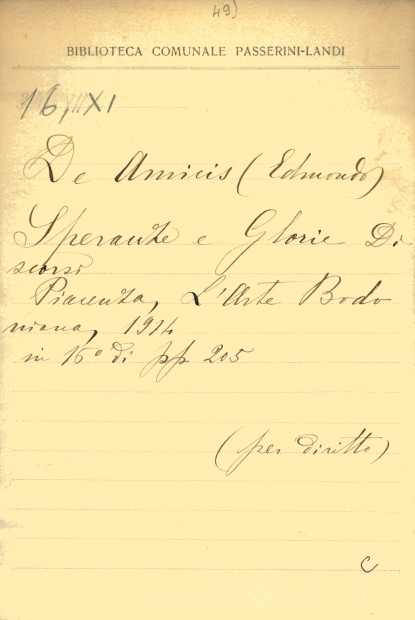 49)
BIBLIOTECA COMUNALE PASSERINI-LANDI
16, XI
De Amicis (Edmondo)
Speranze e Glorie Di
scorsi
Piacenza, L'Arte Bodo
niana, 1914
in 16º di pp. 205
(per diritto)
C